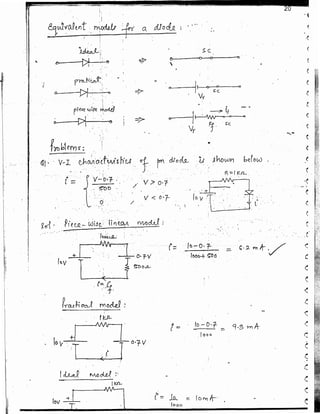 20
Equivalent models for a diode :
Ideal
S C
practical
Vr SC
piece wise model
Vr Rf SC
Problems :
Q1. V-I characteristics of pn diode is shown below .
R = 1KΩ
i = { V-0.7 / 500 , V > 0.7
0 , V < 0.7
10V
i
Sol. Piece-wise linear model :
1000Ω
10V
0.7V
500Ω
i = 10-0.7 / 1000+500 = 6.2 mA. ✓
Practical model :
1KΩ
10V
0.7V
i
i = 10-0.7 / 1000 = 9.3 mA
Ideal model :
1KΩ
10V
i = 10 / 1000 = 10mA